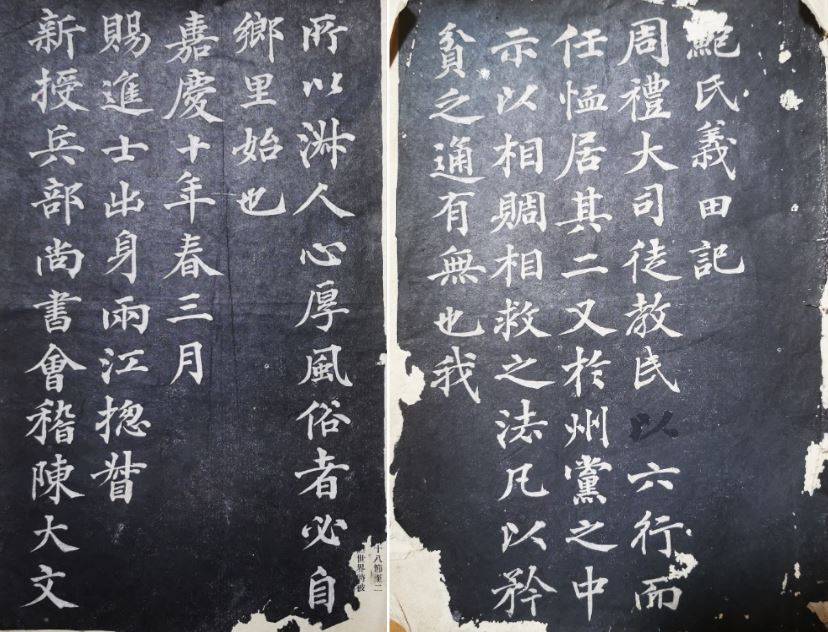 鮑氏義田記
周禮大司徒教民以六行而
任恤居其二又於州黨之中
示以相賙相救之法凡以矜
貧之通有無也我
所以淑人心厚風俗者必自
鄉里始也
嘉慶十年春三月
賜進士出身兩江摠督
新授兵部尚書會稽陳大文
十八節至二
世界將被